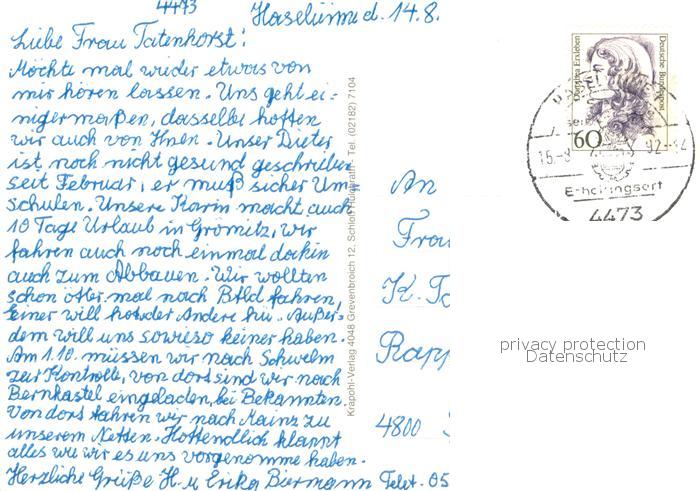 4473 Haselünne d. 14.8.
Liebe Frau Tatenhorst!
Möchte mal wieder etwas von
mir hören lassen. Uns geht ei-
nigermaßen, dasselbe hoffen
wir auch von Ihnen. Unser Dieter
ist noch nicht gesund geschrieben
seit Februar, er muß sicher Um-
schulen. Unsere Karin macht auch
10 Tage Urlaub in Grömitz, wir
fahren auch noch einmal dorhin
auch zum Abbauen. Wir wollten
schon öfter mal nach Bfld fahren,
Einer will hot der Andere hü. Außer-
dem will uns sowieso keiner haben.
Am 1.10. müssen wir nach Schwelm
zur Kontrolle, von dort sind wir nach
Bernkastel eingeladen, bei Bekannten.
Von dort fahren wir nach Mainz zu
unserem Neffen. Hoffendlich klappt
alles wie wir es uns vorgenomme haben.
Herzliche Grüße H. u Erika Biermann Telet. 05
Krapohl-Verlag 4048 Grevenbroich 12, Schloß Hülchrath - Tel. (02182) 7104
An
Frau
K. Ta
Rapp
4800
Dorothea Erxleben
Deutsche Bundespost
60
15.-8 92.-12
Erholungsort
4473
privacy protection
Datenschutz